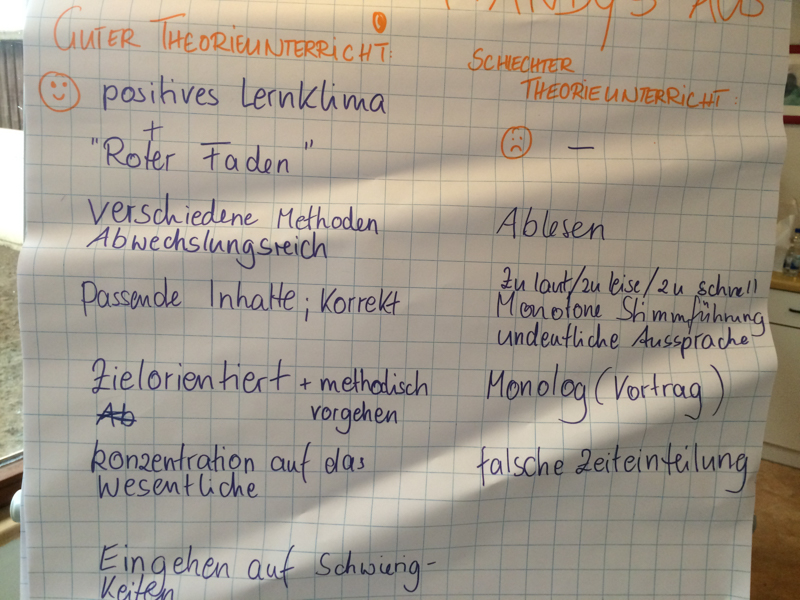 GUTER THEORIEUNTERRICHT:
positives Lernklima
+
"Roter Faden"
Verschiedene Methoden
Abwechslungsreich
Passende Inhalte; Korrekt
Zielorientiert + methodisch
Ab vorgehen
Konzentration auf das
Wesentliche
Eingehen auf Schwierig-
Keiten
SCHLECHTER
THEORIEUNTERRICHT:
—
Ablesen
Zu laut/zu leise/zu schnell
Monotone Stimmführung
undeutliche Aussprache
Monolog (Vortrag)
falsche Zeiteinteilung